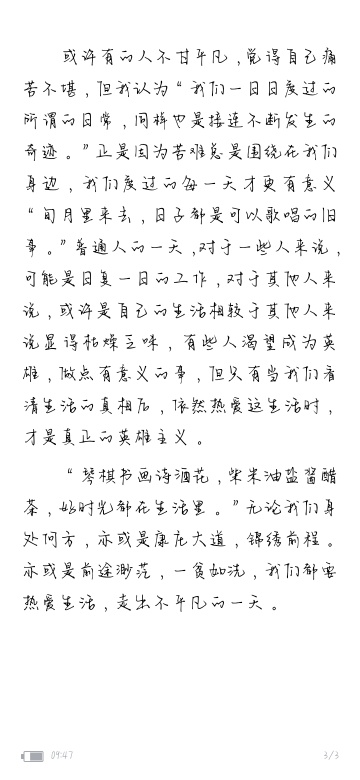 或许有的人不甘平凡，觉得自己痛
苦不堪，但我认为“我们一日日度过的
所谓的日常，同样也是接连不断发生的
奇迹。”正是因为苦难总是围绕在我们
身边，我们度过的每一天才更有意义
“旬月里来去，日子都是可以歌唱的旧
事。”普通人的一天，对于一些人来说，
可能是日复一日的工作，对于其他人来
说，或许是自己的生活相较于其他人来
说显得枯燥乏味，有些人渴望成为英
雄，做点有意义的事，但只有当我们看
清生活的真相后，依然热爱这生活时，
才是真正的英雄主义。
“琴棋书画诗酒花，柴米油盐酱醋
茶，好时光都在生活里。”无论我们身
处何方，亦或是康庄大道，锦绣前程。
亦或是前途渺茫，一贫如洗，我们都要
热爱生活，走出不平凡的一天。
09:47
3/3